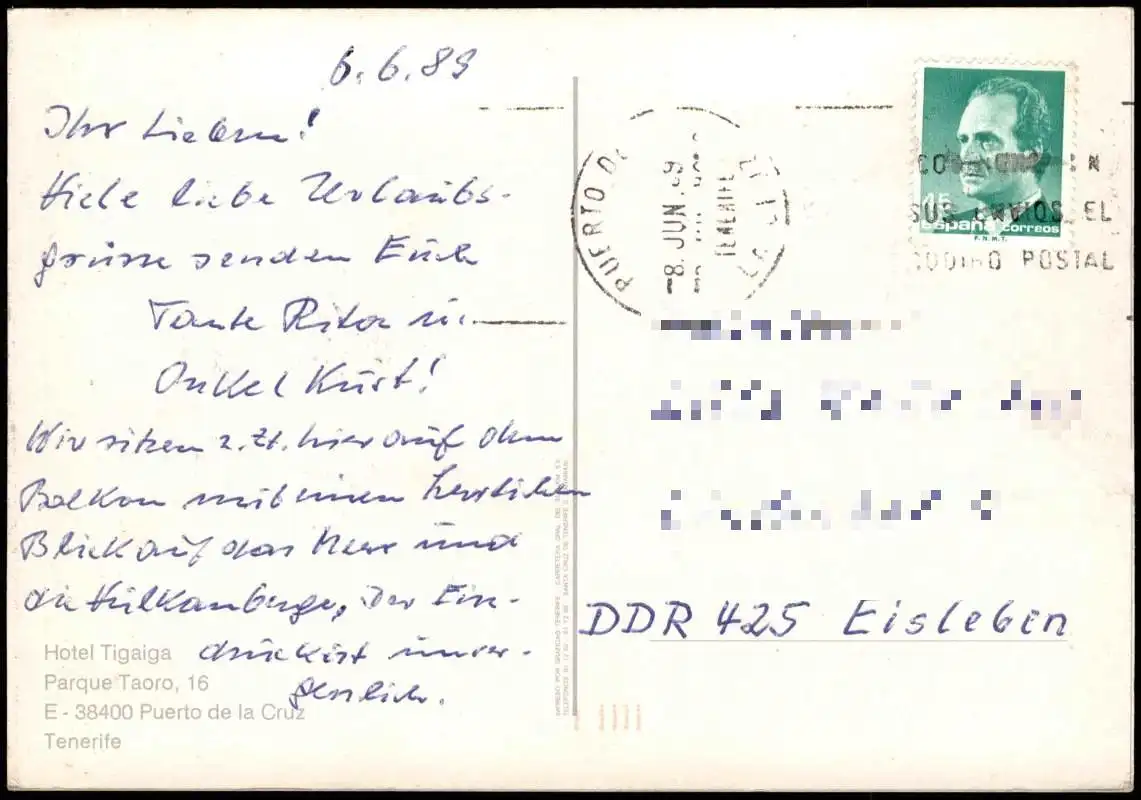 6. 6. 89
Ihr Lieben!
Viele liebe Urlaubs-
grüsse senden Euch
Tante Rita u.
Onkel Kurt!
Wir sitzen z. Zt. hier auf dem
Balkon mit einen herrlichen
Blick auf das Meer und
die Vulkanberge, der Ein-
druck ist unver-
gesslich.
Hotel Tigaiga
Parque Taoro, 16
E - 38400 Puerto de la Cruz
Tenerife
PUERTO D
LA
8. JUN 89
TENERIFE
SUS ENVIOS EL
CODIGO POSTAL
España correos
F.N.M.T.
DDR 425 Eisleben